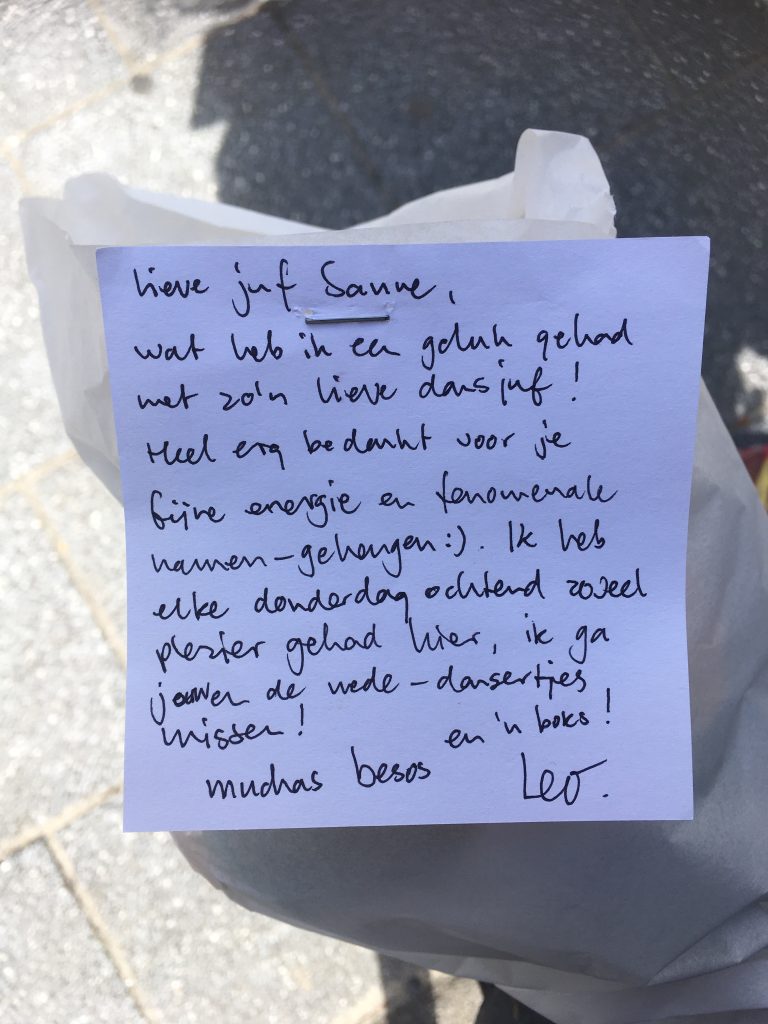 Lieve juf Sanne,
wat heb ik een geluk gehad
met zo'n lieve dansjuf!
Heel erg bedankt voor je
fijne energie en fenomenale
namen-geheugen:). Ik heb
elke donderdag ochtend zoveel
plezier gehad hier, ik ga
jou en de mede-dansertjes
missen!
en 'n boks!
muchas besos
Leo.